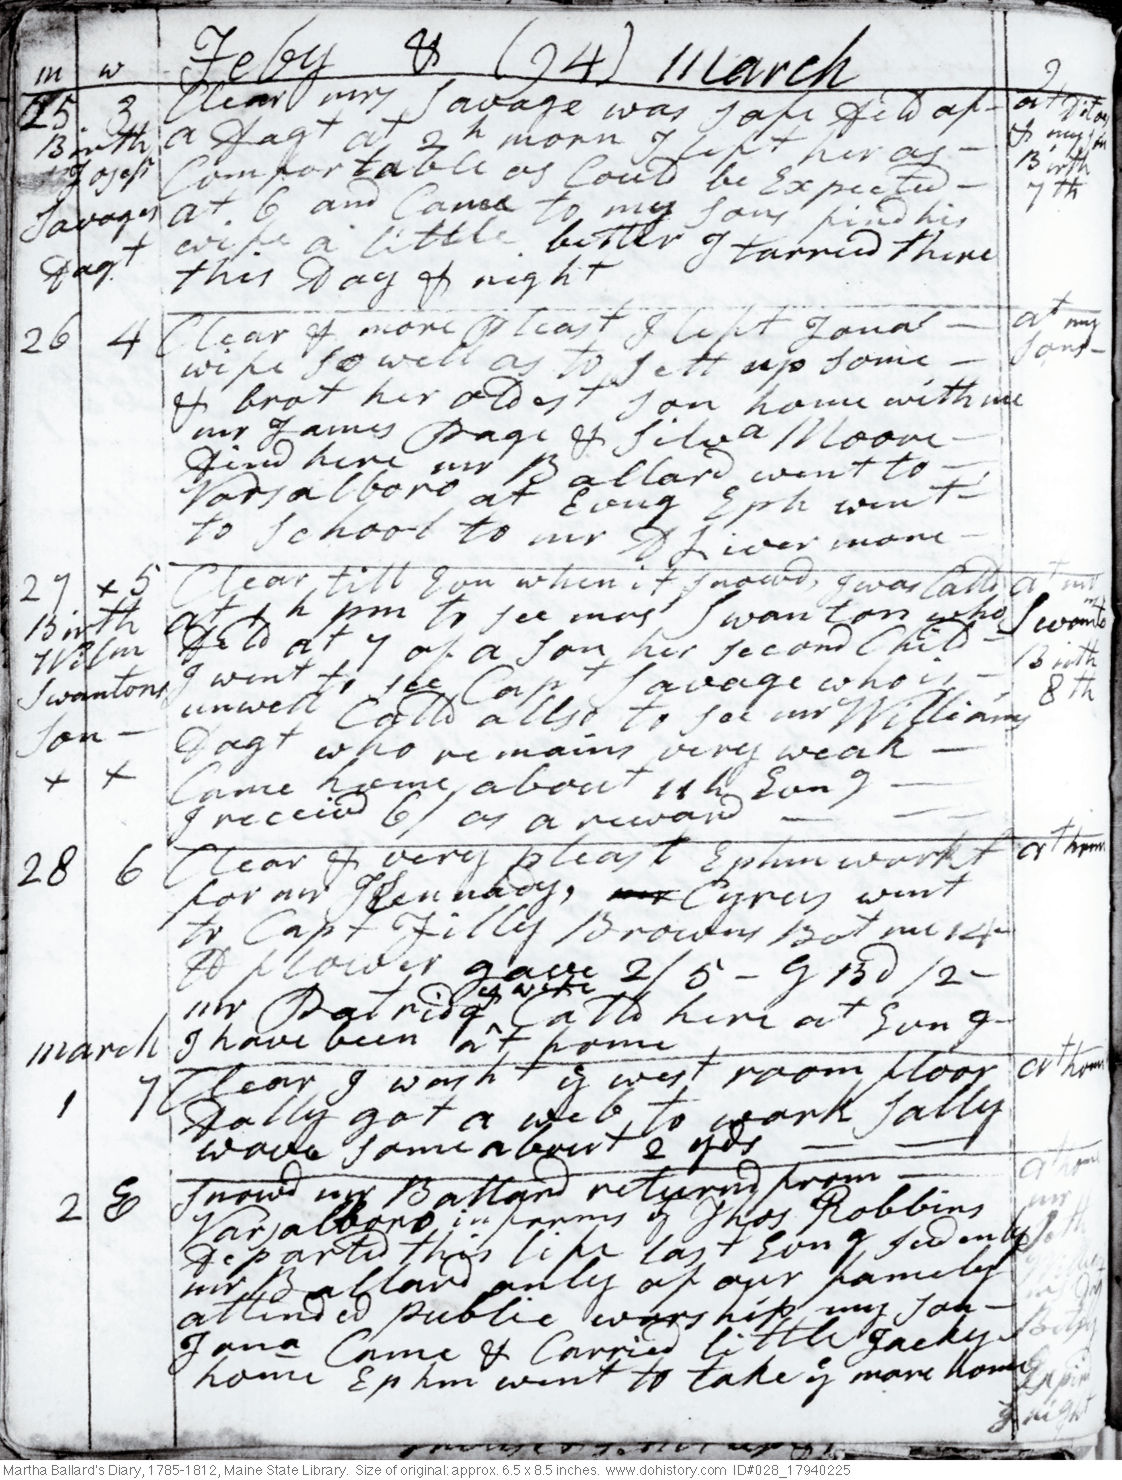 m w Feby & (24) march
25 3 Clear mrs Savage was safe deld of - at Ditos
Birth a Dagt at 2 h morn I left her as - & my son
Josep Comfortable as Could be Expected - Birth
Savages at 6 and Came to my Sons find his 7th
Dagt wife a little better I tarried there
this Day & night
26 4 Clear & more pleast I left Jonas - at my
wife so well as to sett up some - Sons -
& brot her oldest son home with me
mr James Page & Silva Moore -
dind here mr Ballard went to -
Varsalboro at Evng Eph went -
to School to mr D Livermore -
27 x 5 Clear till Evn when it snowd, I was Calld at mr
Birth at 1 h pm to see mrs Swanton who Swantons
Wilm deld at 7 of a Son her second Child - Birth
Swantons I went to see Capt Savage who is - 8th
Son - unwell Calld allso to see mr Williams
x x Dagt who remains very weak -
Came home about 11 h Evng -
I receivd 6/ as a reward - - -
28 6 Clear & very pleast Ephm workt at home
for mr Kennady, Cyrus went
to Capt Filly Browns Bot me 14
lb flower gave 2/5 - G Bd /2 -
mr Patridg & wife Calld here at Evng -
march I have been at home
1 7 Clear I washt ye west room floor at home
Dolly got a web to work Sally
wove some about 2 yds - -
2 E Snowd mr Ballard returnd from - at home
Varsalboro, informs yt Thos Robbins mr
Departed this life last Evng sudenly Seth
mr Ballard only of our famely
attended public worship my son -
Jona Came & Carried little Jacky Betsy
home Ephm went to take ye mare home Expird
ye night
Martha Ballard's Diary, 1785-1812, Maine State Library. Size of original: approx. 6.5 x 8.5 inches. www.dohistory.com ID#028_17940225